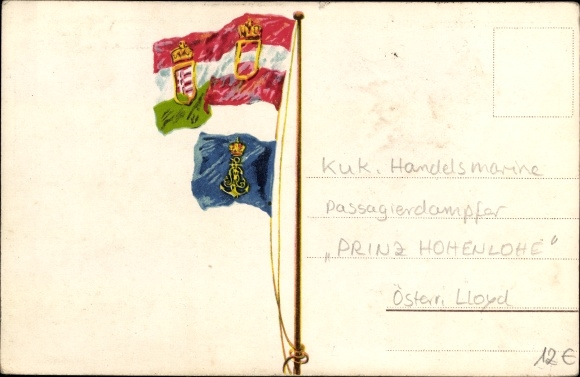 KuK. Handelsmarine
Passagierdampfer
„PRINZ HOHENLOHE"
Österr. Lloyd
12€